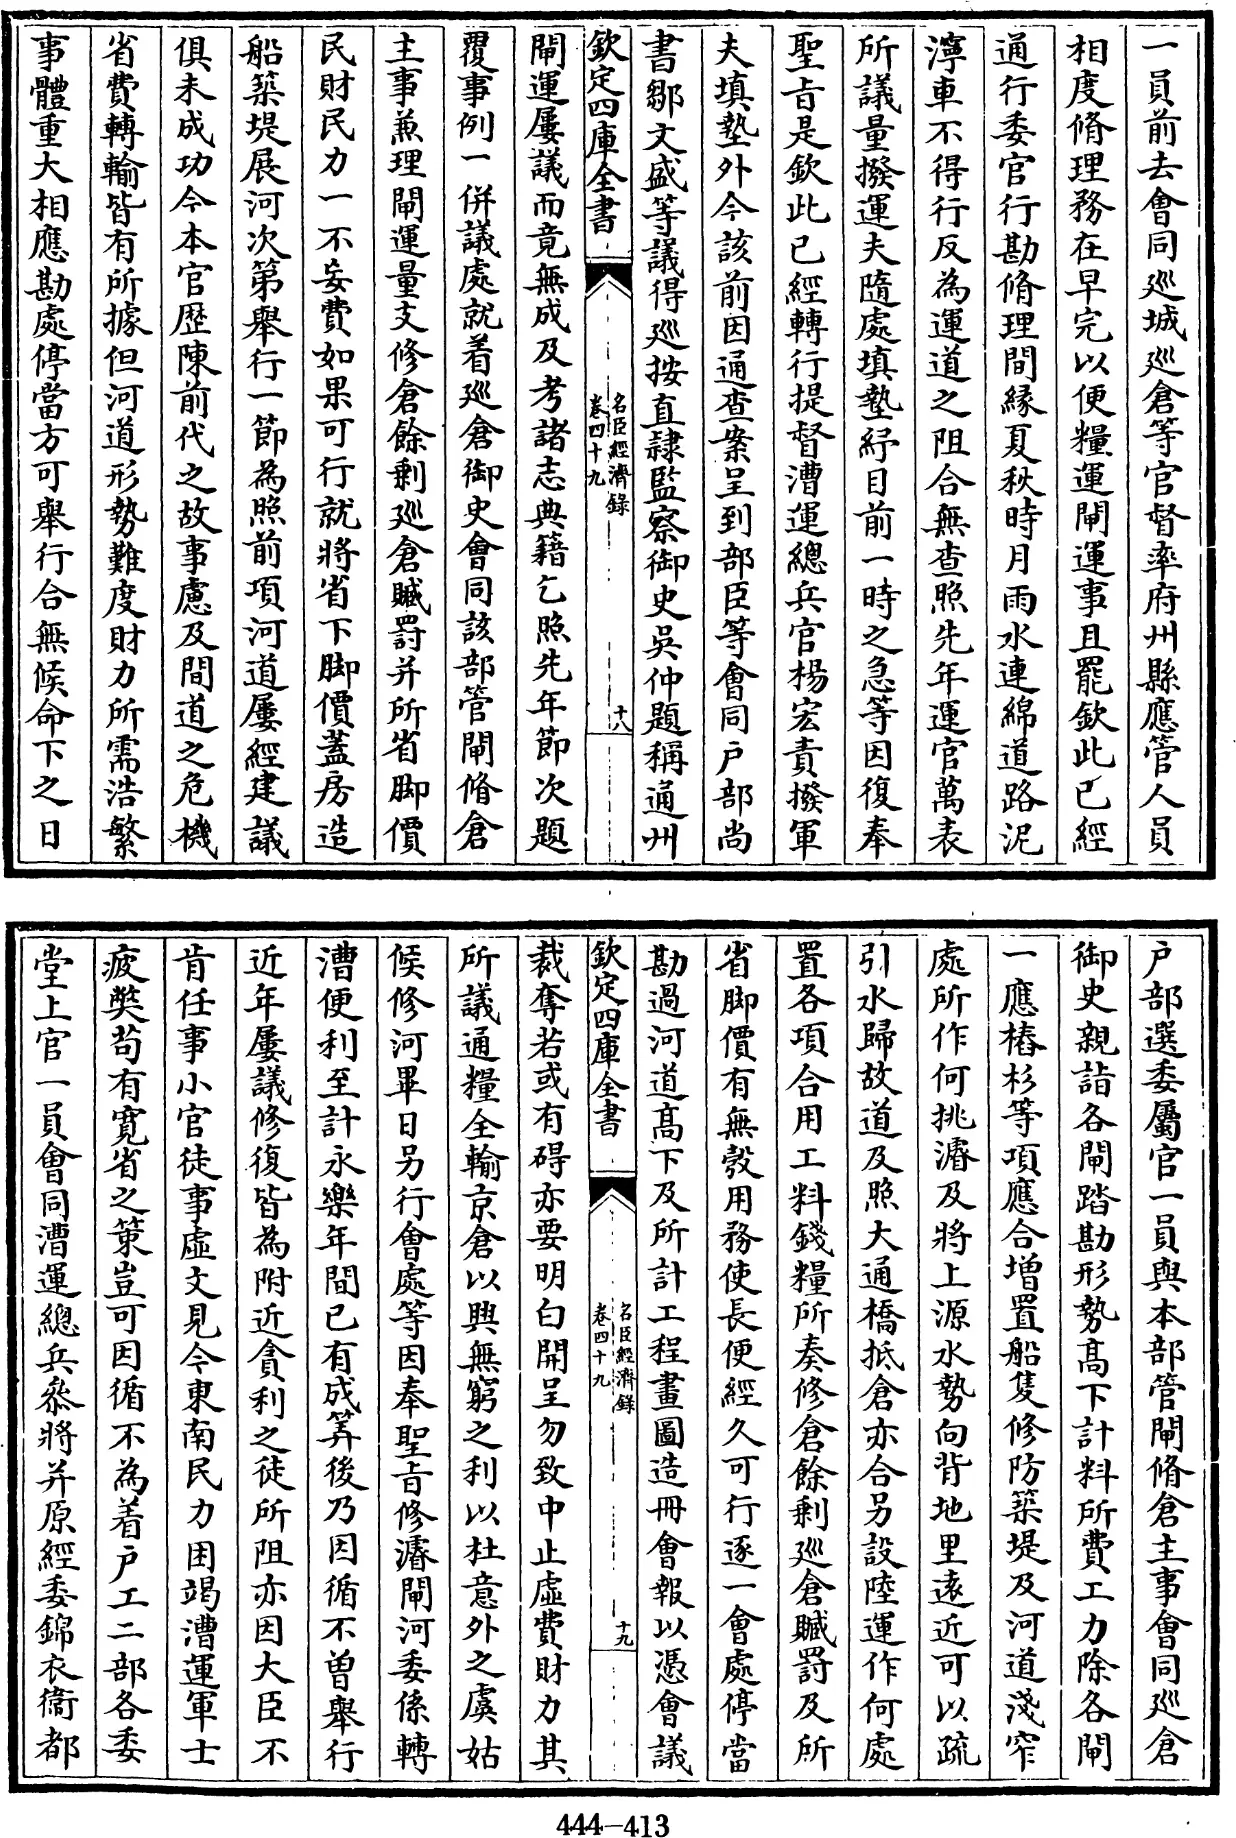 一員前去㑹同廵城廵倉等官督率府州縣應管人員
相度脩理務在早完以便糧運閘運事且罷欽此已經
通行委官行勘脩理間縁夏秋時月雨水連綿道路泥
濘車不得行反為運道之阻合無查照先年運官萬表
所議量撥運夫隨處填墊紓目前一時之急等因復奉
聖㫖是欽此已經轉行提督漕運總兵官楊宏責撥軍
夫填墊外今該前因通查案呈到部臣等㑹同户部尚
書鄒文盛等議得廵按直隸監察御史吳仲題稱通州
欽定四庫全書
名臣經濟錄
卷四十九
十八
閘運屢議而竟無成及考諸志典籍乞照先年節次題
覆事例一併議處就着廵倉御史㑹同該部管閘脩倉
主事兼理閘運量支修倉餘剩廵倉贓罰并所省脚價
民財民力一不妄費如果可行就將省下脚價蓋房造
船築堤展河次第舉行一節為照前項河道屢經建議
俱未成功今本官歴陳前代之故事慮及間道之危機
省費轉輸皆有所據但河道形勢難度財力所需浩繁
事體重大相應勘處停當方可舉行合無候命下之日
户部選委屬官一員與本部管閘脩倉主事㑹同廵倉
御史親詣各閘踏勘形勢髙下計料所費工力除各閘
一應樁杉等項應合增置船隻修防築堤及河道淺窄
處所作何挑濬及將上源水勢向背地里逺近可以疏
引水歸故道及照大通橋抵倉亦合另設陸運作何處
置各項合用工料錢糧所奏修倉餘剩廵倉贓罰及所
省脚價有無彀用務使長便經久可行逐一㑹處停當
勘過河道髙下及所計工程畫圖造冊㑹報以憑㑹議
欽定四庫全書
名臣經濟錄
卷四十九
十九
裁奪若或有碍亦要明白開呈勿致中止虛費財力其
所議通糧全輸京倉以興無窮之利以杜意外之虞姑
候修河畢日另行㑹處等因奉聖㫖修濬閘河委係轉
漕便利至計永樂年間已有成筭後乃因循不曽舉行
近年屢議修復皆為附近貪利之徒所阻亦因大臣不
肯任事小官徒事虛文見今東南民力困竭漕運軍士
疲獘茍有寛省之策豈可因循不為着户工二部各委
堂上官一員㑹同漕運總兵叅將并原經委錦衣衛都
444-413